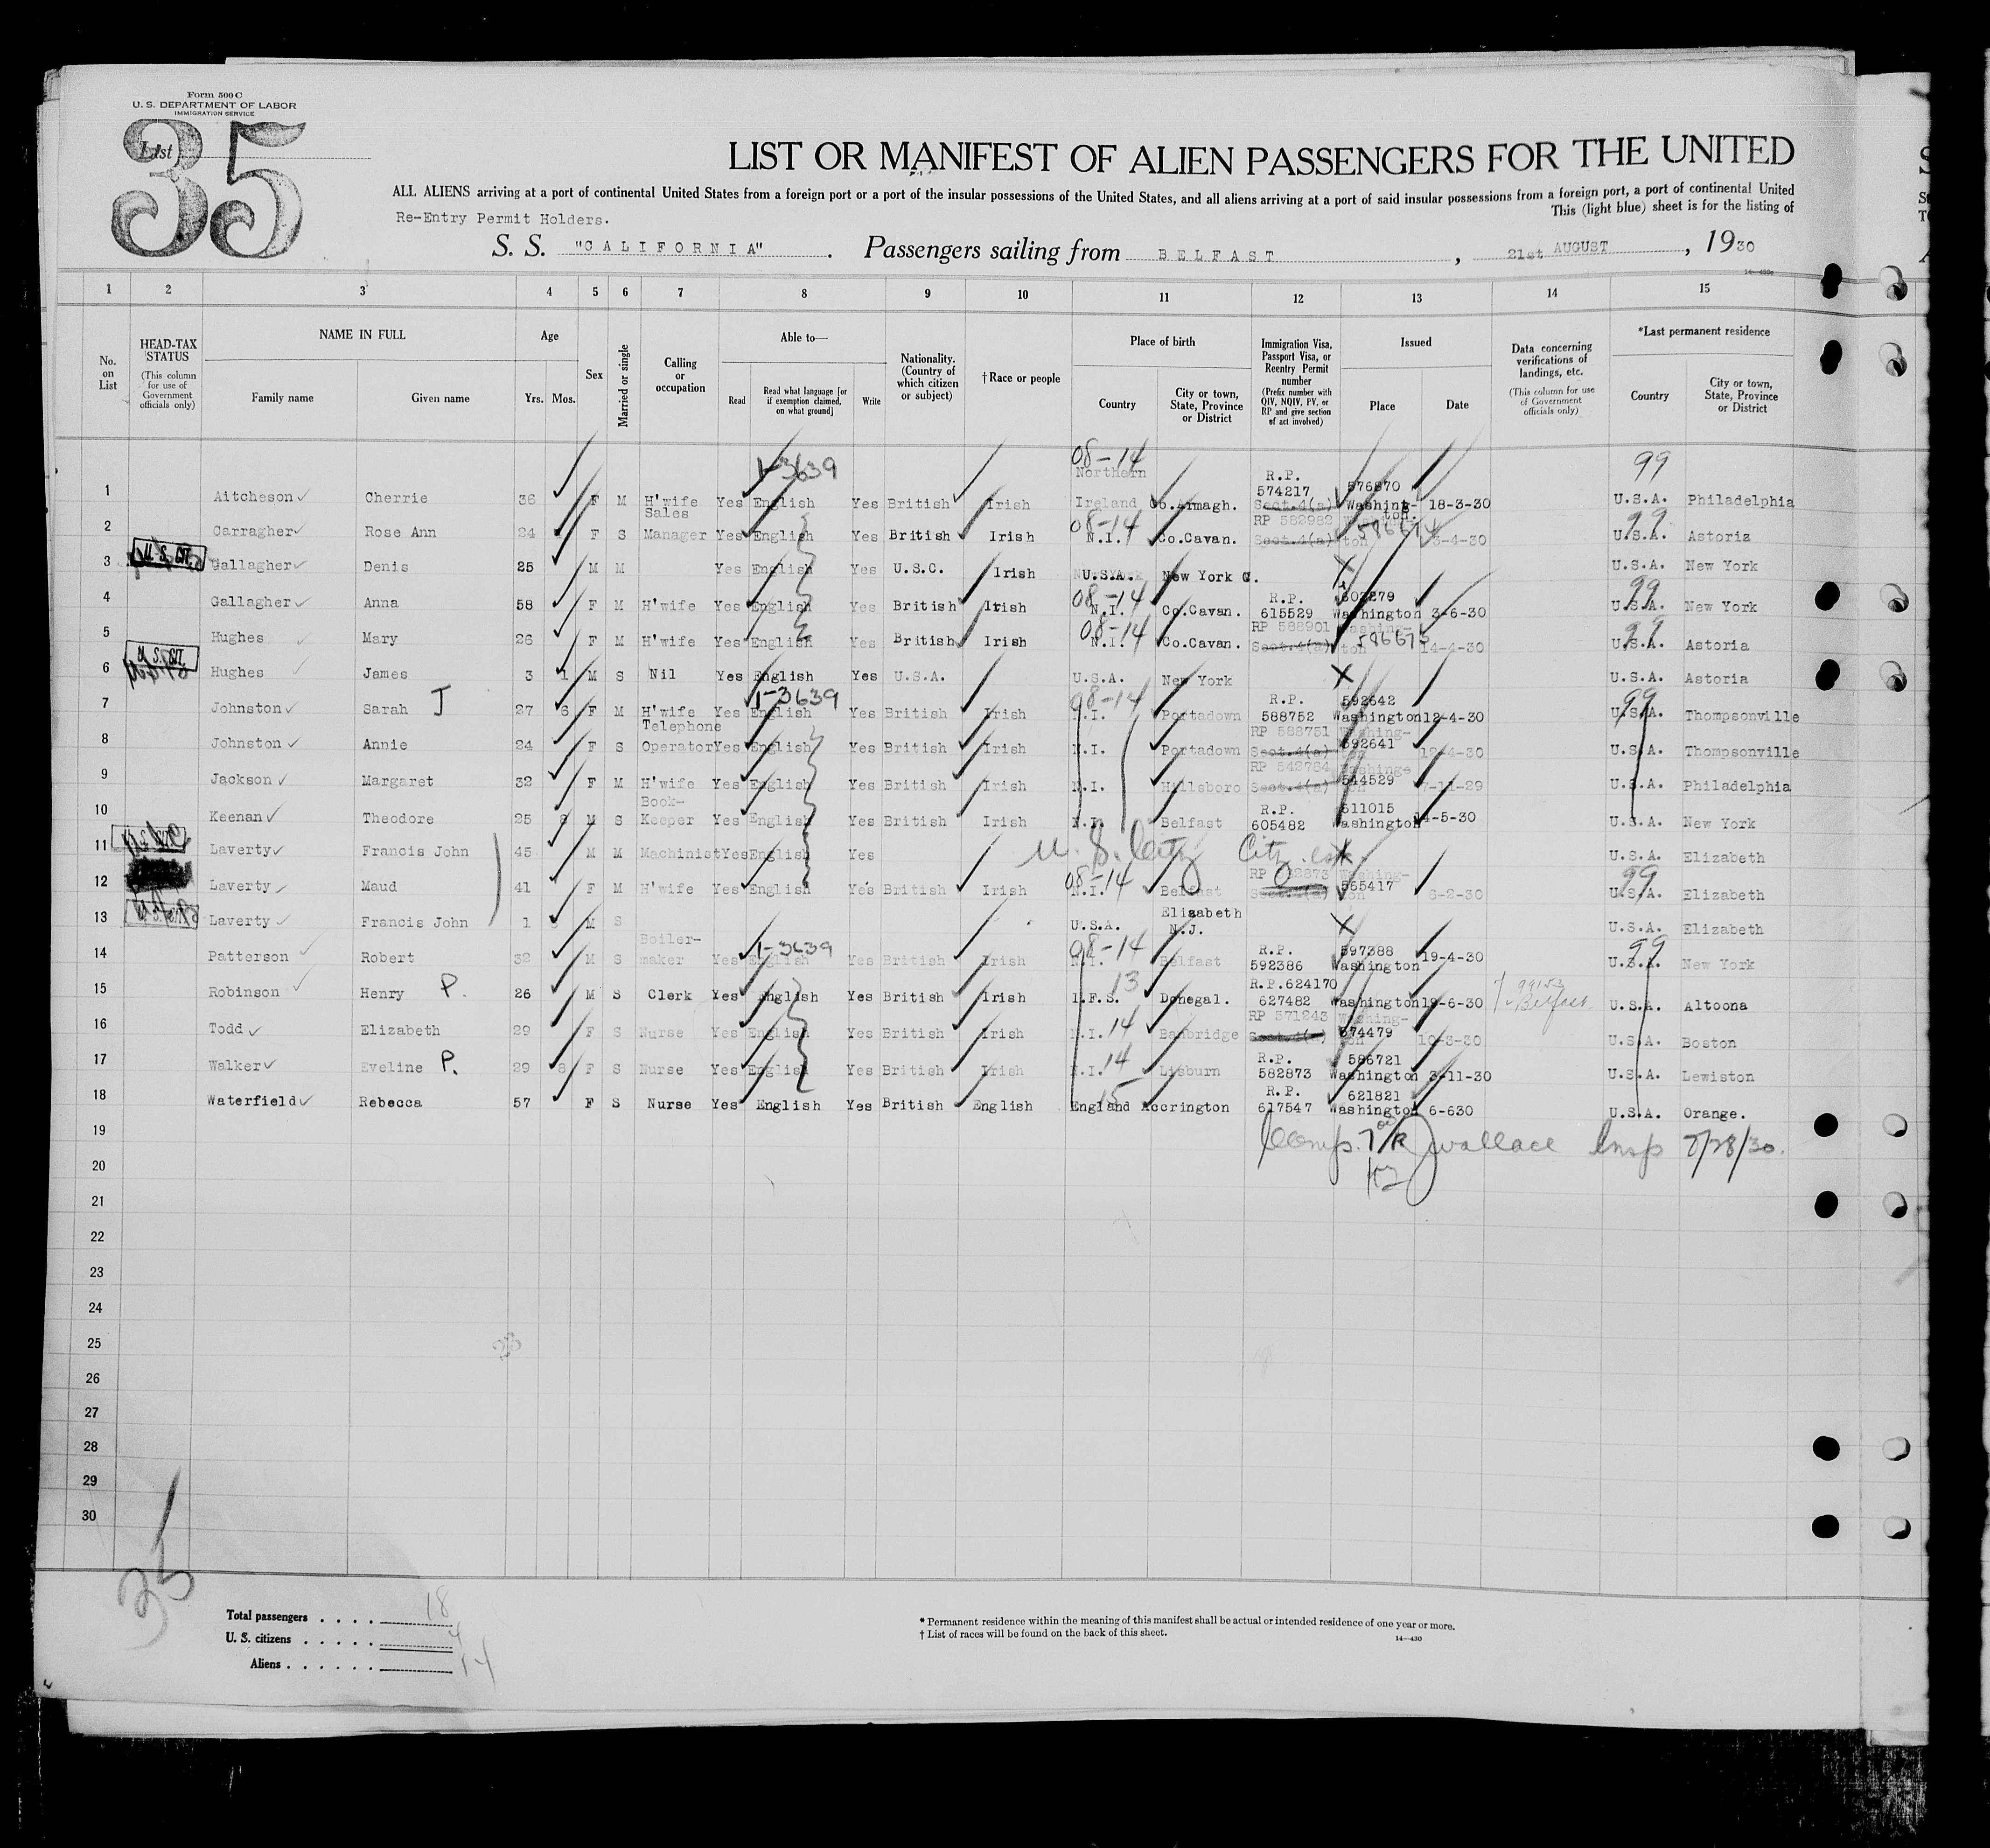 Form 500 C
U. S. DEPARTMENT OF LABOR
IMMIGRATION SERVICE
List
35
LIST OR MANIFEST OF ALIEN PASSENGERS FOR THE UNITED
ALL ALIENS arriving at a port of continental United States from a foreign port or a port of the insular possessions of the United States, and all aliens arriving at a port of said insular possessions from a foreign port, a port of continental United
Re-Entry Permit Holders. This (light blue) sheet is for the listing of
S. S. "CALIFORNIA". Passengers sailing from BELFAST, 21st AUGUST, 1930
1 2 3 4 5 6 7 8 9 10 11 12 13 14 15
No. on List
HEAD-TAX STATUS (This column for use of Government officials only)
NAME IN FULL
Family name Given name
Age
Yrs. Mos.
Sex
Married or single
Calling or occupation
Able to—
Read Read what language [or if exemption claimed, on what ground] Write
Nationality. (Country of which citizen or subject)
†Race or people
Place of birth
Country City or town, State, Province or District
Immigration Visa, Passport Visa, or Reentry Permit number (Prefix number with QIV, NQIV, PV, or RP and give section of act involved)
Issued
Place Date
Data concerning verifications of landings, etc. (This column for use of Government officials only)
*Last permanent residence
Country City or town, State, Province or District
1-3639 08-14 99
1 Aitcheson Cherrie 36 F M H'wife Yes English Yes British Irish Northern Ireland Co.Armagh. R.P. 574217 Sect.4(a) 576670 Washington. 18-3-30 U.S.A. Philadelphia
2 Carragher Rose Ann 24 F S Sales Manager Yes English Yes British Irish 08-14 N.I. Co.Cavan. RP 582982 Sect.4(a) -4-30 99 U.S.A. Astoria
3 U. S. CIT. Gallagher Denis 25 M M Yes English Yes U.S.C. Irish U.S.A. New York C. X U.S.A. New York
4 Gallagher Anna 58 F M H'wife Yes English Yes British Irish 08-14 N.I. Co.Cavan. R.P. 615529 603279 Washington 3-6-30 99 U.S.A. New York
5 Hughes Mary 26 F M H'wife Yes English Yes British Irish 08-14 N.I. Co.Cavan. RP 588901 Sect.4(a) Washington 596675 14-4-30 99 U.S.A. Astoria
6 U. S. CIT. Hughes James 3 1 M S Nil Yes English Yes U.S.A. U.S.A. New York X U.S.A. Astoria
7 Johnston Sarah J 27 6 F M H'wife Yes 1-3639 English Yes British Irish 08-14 N.I. Portadown R.P. 588752 592642 Washington 12-4-30 99 U.S.A. Thompsonville
8 Johnston Annie 24 F S Telephone Operator Yes English Yes British Irish N.I. Portadown RP 588751 Sect.4(a) Washington 592641 12-4-30 U.S.A. Thompsonville
9 Jackson Margaret 32 F M H'wife Yes English Yes British Irish N.I. Hillsboro RP 542754 Sect.4(a) Washington 544529 -11-29 U.S.A. Philadelphia
10 Keenan Theodore 25 8 M S Book-Keeper Yes English Yes British Irish N.I. Belfast R.P. 605482 611015 Washington 14-5-30 U.S.A. New York
11 Laverty Francis John 45 M M Machinist Yes English Yes U. S. Citz Citz. X U.S.A. Elizabeth
12 Laverty Maud 41 F M H'wife Yes English Yes British Irish 08-14 N.I. Belfast Washington 565417 6-2-30 99 U.S.A. Elizabeth
13 Laverty Francis John 1 M S U.S.A. Elizabeth N.J. X U.S.A. Elizabeth
14 Patterson Robert 32 M S Boiler-maker Yes 1-3639 English Yes British Irish 08-14 N.I. Belfast R.P. 592386 597388 Washington 19-4-30 99 U.S.A. New York
15 Robinson Henry P. 26 M S Clerk Yes English Yes British Irish 13 I.F.S. Donegal. R.P.624170 627482 Washington 19-6-30 Belfast U.S.A. Altoona
16 Todd Elizabeth 29 F S Nurse Yes English Yes British Irish N.I. 14 Banbridge RP 571243 Sect.4(a) Washington 574479 10-3-30 U.S.A. Boston
17 Walker Eveline P. 29 8 F S Nurse Yes English Yes British Irish N.I. 14 Lisburn R.P. 582873 586721 Washington 3-11-30 U.S.A. Lewiston
18 Waterfield Rebecca 57 F S Nurse Yes English Yes British English 15 England Accrington R.P. 617547 621821 Washington 6-630 U.S.A. Orange.
19 Comp. Wallace Insp 8/28/30.
20
21
22
23
24
25
26
27
28
29
30
35
Total passengers . . . . 18
U. S. citizens . . . . . 4
Aliens . . . . . . 14
* Permanent residence within the meaning of this manifest shall be actual or intended residence of one year or more.
† List of races will be found on the back of this sheet.
14—430